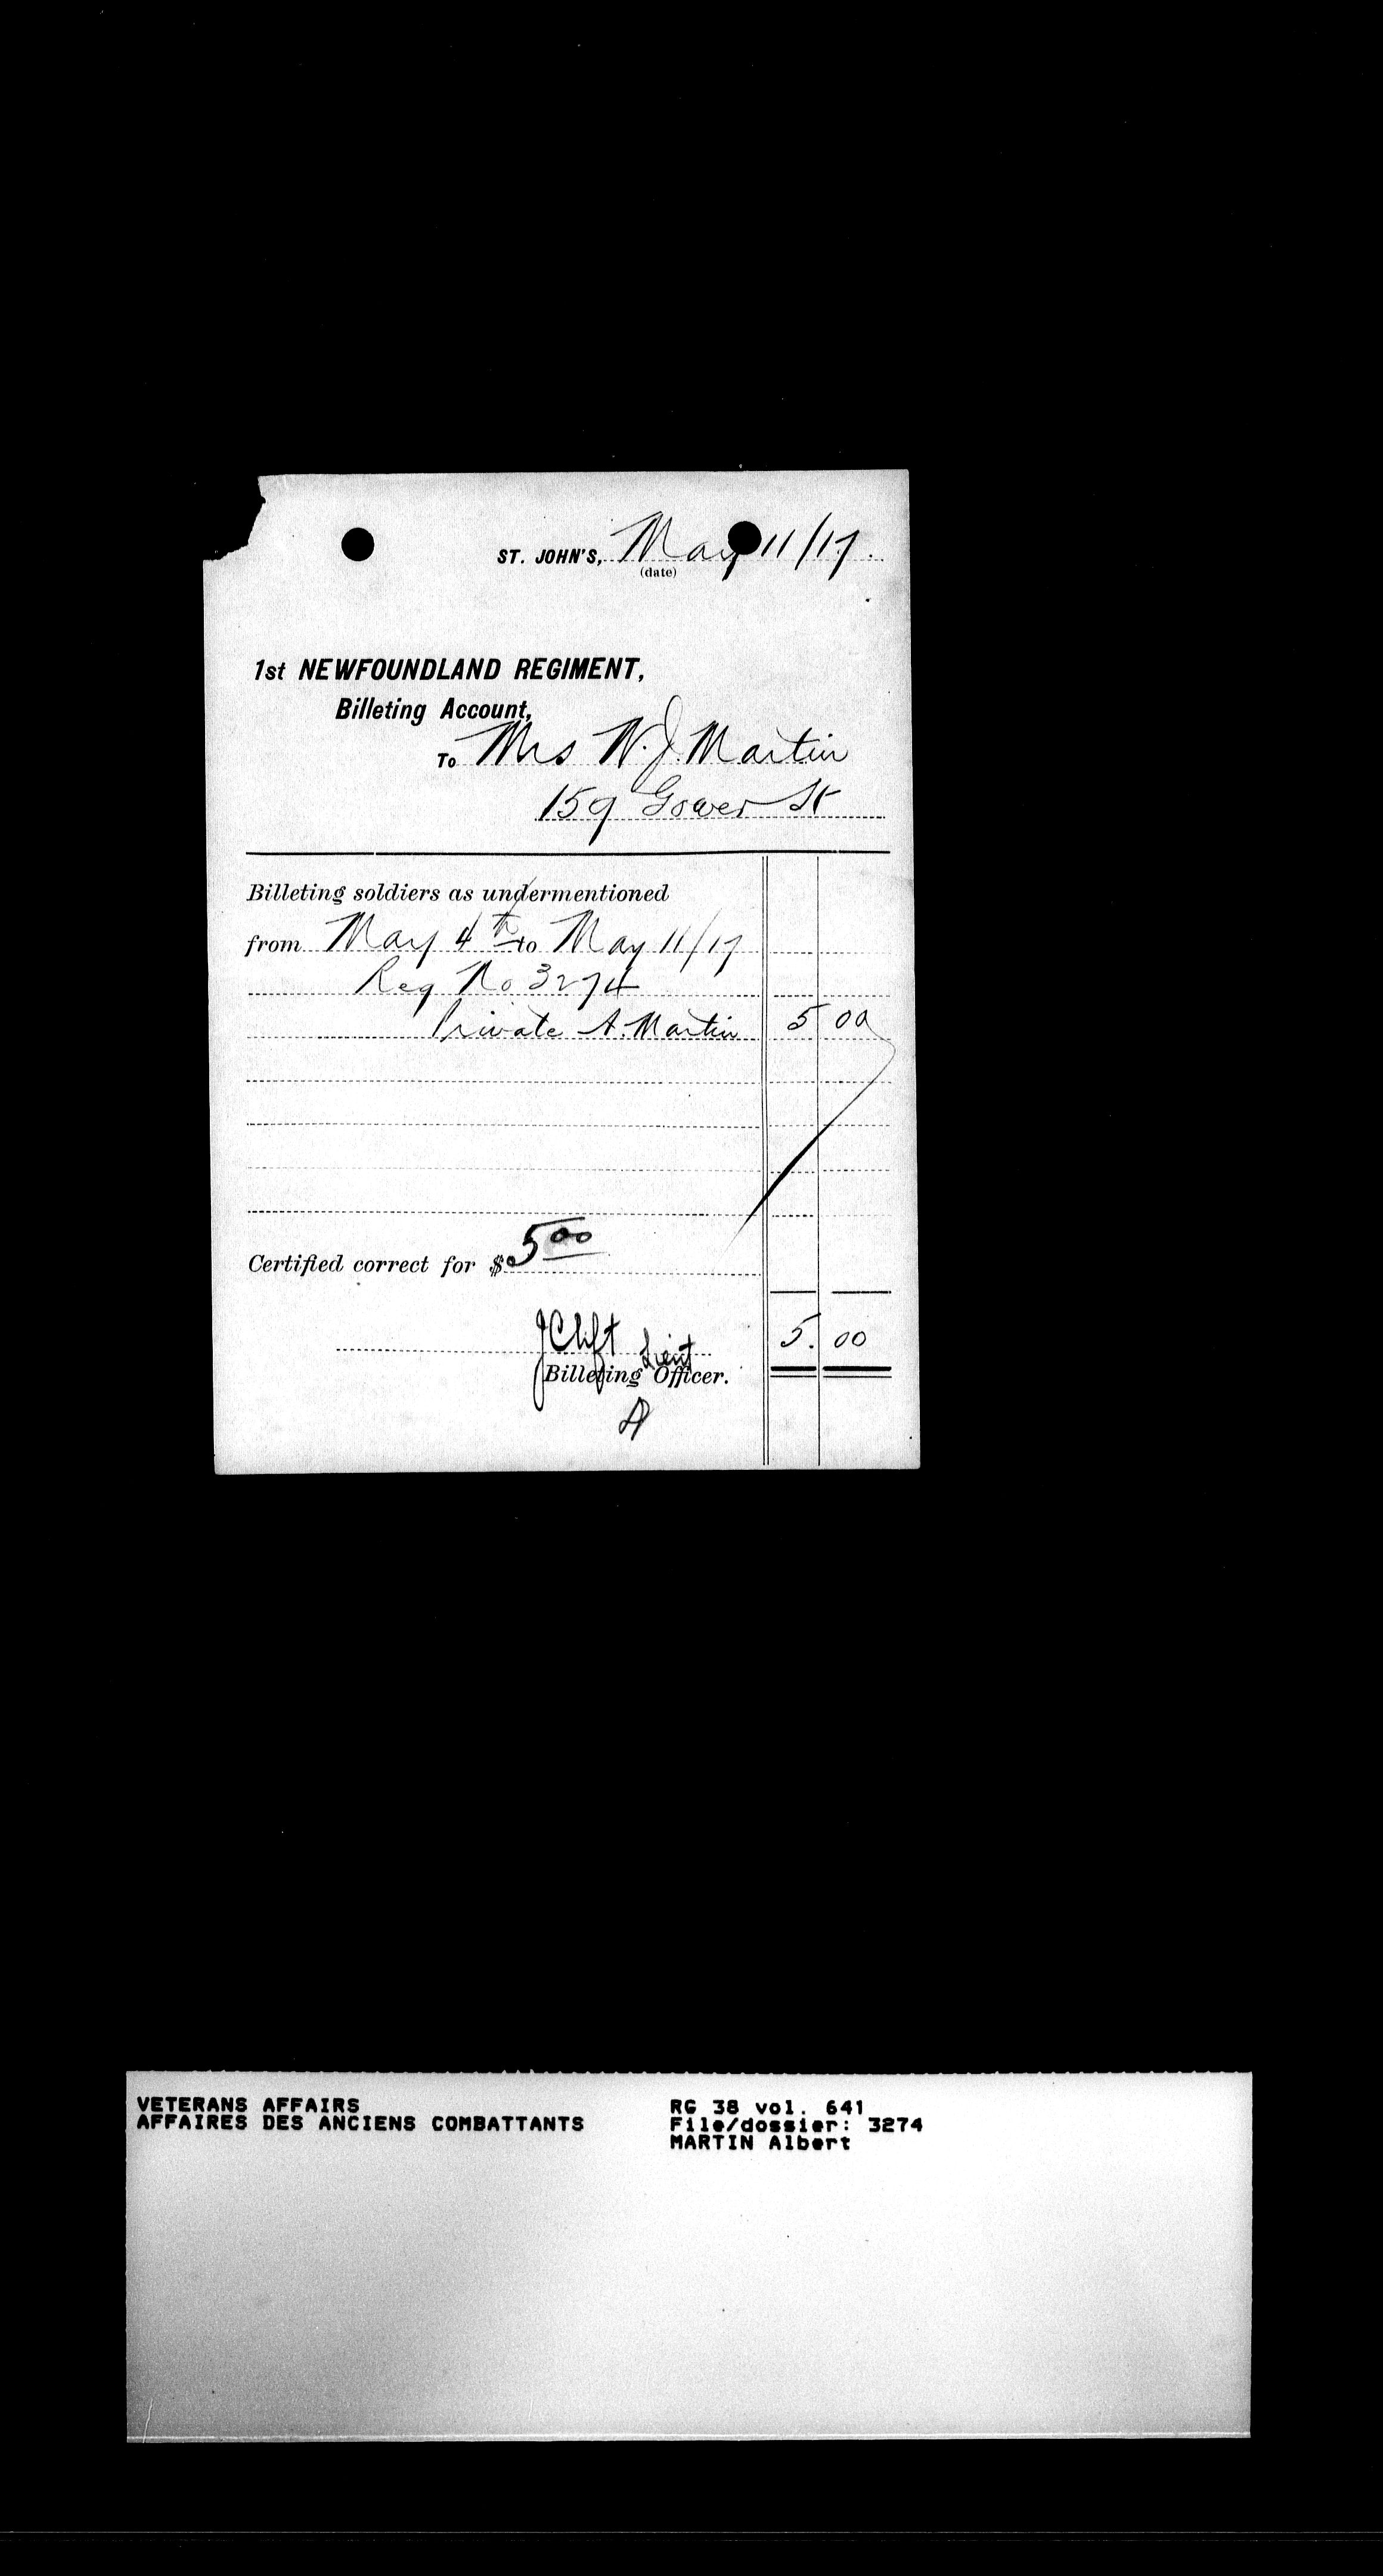 ST. JOHN'S, May 11/17.
(date)
1st NEWFOUNDLAND REGIMENT,
Billeting Account,
To Mrs W. J. Martin
159 Gower St
Billeting soldiers as undermentioned
from May 4th to May 11/17
Reg No 3274
Private A. Martin 5 00
Certified correct for $5 00
J Clift Lieut 5. 00
Billeting Officer.
VETERANS AFFAIRS RG 38 vol. 641
AFFAIRES DES ANCIENS COMBATTANTS File/dossier: 3274
MARTIN Albert